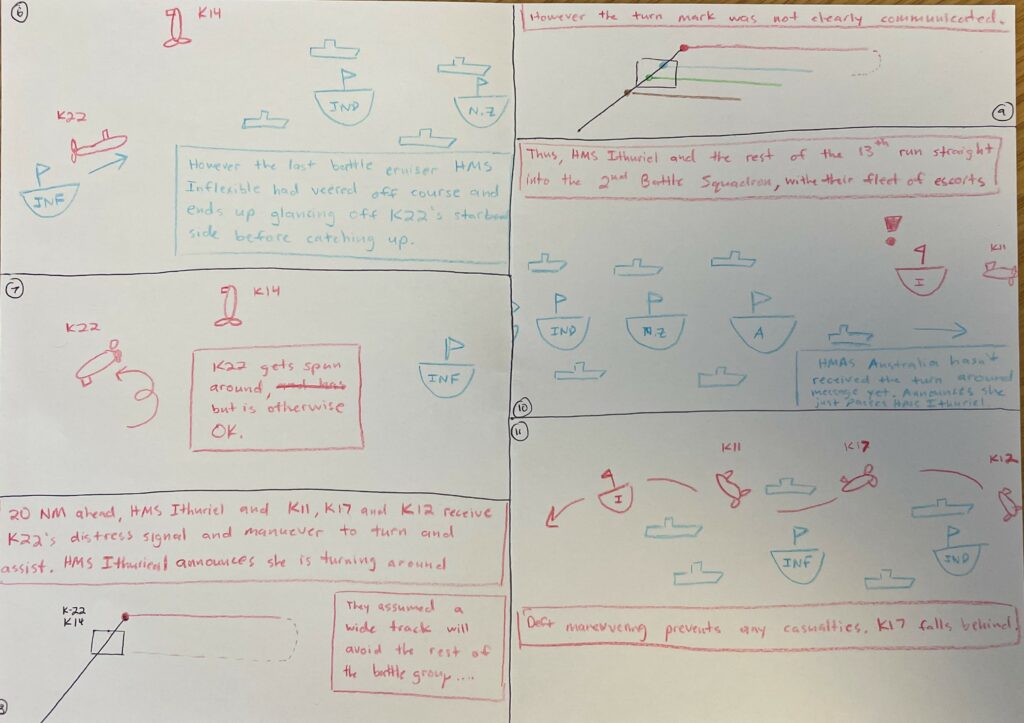 6
K14
K22
IND
N.Z
INF
However the last battle cruiser HMS
Inflexible had veered off course and
ends up glancing off K22's starboard
side before catching up.
7
K14
K22
INF
K22 gets spun
around, and has
but is otherwise
OK.
20 NM ahead, HMS Ithuriel and K11, K17 and K12 receive
K22's distress signal and manuever to turn and
assist. HMS Ithurieal announces she is turning around
K-22
K14
They assumed a
wide track will
avoid the rest of
the battle group....
8
However the turn mark was not clearly communicated.
9
Thus, HMS Ithuriel and the rest of the 13th run straight
into the 2nd Battle Squadron, withe their fleet of escorts
!
K11
I
IND
N.Z
A
HMAS Australia hasn't
received the turn around
message yet. Announces she
just passes HMS Ithuriel
10
11
K11
K17
K12
I
INF
IND
Deft maneuvering prevents any casualties. K17 falls behind.